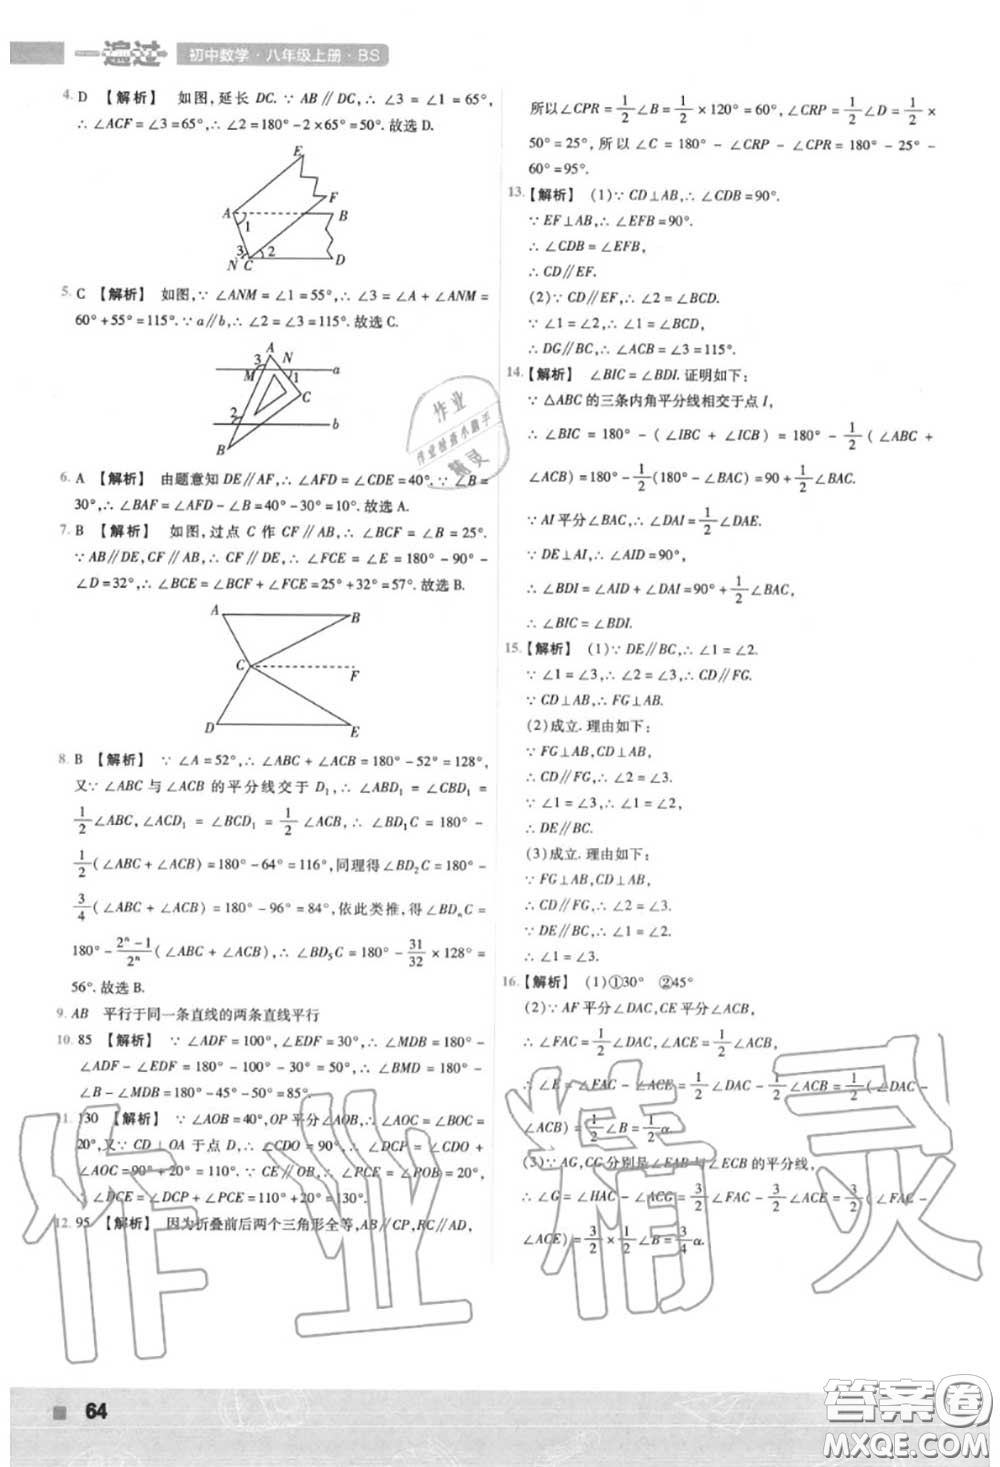 一遍过 初中数学·八年级上册·BS
4. D 【解析】 如图,延长 DC.∵ AB∥DC,∴ ∠3 = ∠1 = 65°,
∴ ∠ACF = ∠3 = 65°,∴ ∠2 = 180° - 2×65° = 50°. 故选 D.
E
F
A B
1
3 2
N C D
5. C 【解析】 如图,∵ ∠ANM = ∠1 = 55°,∴ ∠3 = ∠A + ∠ANM =
60° + 55° = 115°. ∵ a∥b,∴ ∠2 = ∠3 = 115°. 故选 C.
A
3 N
M 1 a
C
2 b
B
6. A 【解析】 由题意知 DE∥AF,∴ ∠AFD = ∠CDE = 40°. ∵ ∠B =
30°,∴ ∠BAF = ∠AFD - ∠B = 40° - 30° = 10°. 故选 A.
7. B 【解析】 如图,过点 C 作 CF∥AB,∴ ∠BCF = ∠B = 25°.
∵ AB∥DE,CF∥AB,∴ CF∥DE,∴ ∠FCE = ∠E = 180° - 90° -
∠D = 32°,∴ ∠BCE = ∠BCF + ∠FCE = 25° + 32° = 57°. 故选 B.
A B
C F
D E
8. B 【解析】 ∵ ∠A = 52°,∴ ∠ABC + ∠ACB = 180° - 52° = 128°,
又∵ ∠ABC 与 ∠ACB 的平分线交于 D₁,∴ ∠ABD₁ = ∠CBD₁ =
1/2 ∠ABC,∠ACD₁ = ∠BCD₁ = 1/2 ∠ACB,∴ ∠BD₁C = 180° -
1/2(∠ABC + ∠ACB) = 180° - 64° = 116°,同理得∠BD₂C = 180° -
3/4(∠ABC + ∠ACB) = 180° - 96° = 84°,依此类推,得∠BDₙC =
180° - (2ⁿ-1)/2ⁿ (∠ABC + ∠ACB),∴ ∠BD₅C = 180° - 31/32 × 128° =
56°. 故选 B.
9. AB 平行于同一条直线的两条直线平行
10. 85 【解析】 ∵ ∠ADF = 100°,∠EDF = 30°,∴ ∠MDB = 180° -
∠ADF - ∠EDF = 180° - 100° - 30° = 50°,∴ ∠BMD = 180° -
∠B - ∠MDB = 180° - 45° - 50° = 85°.
11. 130 【解析】 ∵ ∠AOB = 40°,OP平分∠AOB,∴ ∠AOC = ∠BOC =
20°,又∵ CD⊥OA 于点 D,∴ ∠CDO = 90°,∴ ∠DCP = ∠CDO +
∠AOC = 90° + 20° = 110°. ∵ CE∥OB,∴ ∠PCE = ∠POB = 20°,
∴ ∠DCE = ∠DCP + ∠PCE = 110° + 20° = 130°.
12. 95 【解析】 因为折叠前后两个三角形全等,AB∥CP,RC∥AD,
所以∠CPR = 1/2 ∠B = 1/2 × 120° = 60°,∠CRP = 1/2 ∠D = 1/2 ×
50° = 25°,所以∠C = 180° - ∠CRP - ∠CPR = 180° - 25° -
60° = 95°.
13. 【解析】 (1)∵ CD⊥AB,∴ ∠CDB = 90°.
∵ EF⊥AB,∴ ∠EFB = 90°.
∴ ∠CDB = ∠EFB,
∴ CD∥EF.
(2)∵ CD∥EF,∴ ∠2 = ∠BCD.
∵ ∠1 = ∠2,∴ ∠1 = ∠BCD,
∴ DG∥BC,∴ ∠ACB = ∠3 = 115°.
14. 【解析】 ∠BIC = ∠BDI. 证明如下:
∵ △ABC 的三条内角平分线相交于点 I,
∴ ∠BIC = 180° - (∠IBC + ∠ICB) = 180° - 1/2(∠ABC +
∠ACB) = 180° - 1/2(180° - ∠BAC) = 90° + 1/2 ∠BAC.
∵ AI 平分∠BAC,∴ ∠DAI = 1/2 ∠DAE.
∵ DE⊥AI,∴ ∠AID = 90°,
∴ ∠BDI = ∠AID + ∠DAI = 90° + 1/2 ∠BAC,
∴ ∠BIC = ∠BDI.
15. 【解析】 (1)∵ DE∥BC,∴ ∠1 = ∠2.
∵ ∠1 = ∠3,∴ ∠2 = ∠3,∴ CD∥FG.
∵ CD⊥AB,∴ FG⊥AB.
(2)成立. 理由如下:
∵ FG⊥AB,CD⊥AB,
∴ CD∥FG,∴ ∠2 = ∠3.
∵ ∠1 = ∠3,∴ ∠1 = ∠2,
∴ DE∥BC.
(3)成立. 理由如下:
∵ FG⊥AB,CD⊥AB,
∴ CD∥FG,∴ ∠2 = ∠3.
∵ DE∥BC,∴ ∠1 = ∠2,
∴ ∠1 = ∠3.
16. 【解析】 (1)①30° ②45°
(2)∵ AF 平分∠DAC,CE 平分∠ACB,
∴ ∠FAC = 1/2 ∠DAC,∠ACE = 1/2 ∠ACB,
∴ ∠E = ∠FAC - ∠ACE = 1/2 ∠DAC - 1/2 ∠ACB = 1/2(∠DAC -
∠ACB) = 1/2 ∠B = 1/2 α.
(3)∵ AG,CG 分别是∠EAB 与∠ECB 的平分线,
∴ ∠G = ∠HAC - ∠ACG = 3/2 ∠FAC - 3/2 ∠ACE = 3/2(∠FAC -
∠ACE) = 3/2 × 1/2 ∠B = 3/4 α.
作业
作业检查小助手
精灵
作业精灵
64
答案圈
MXQE.COM